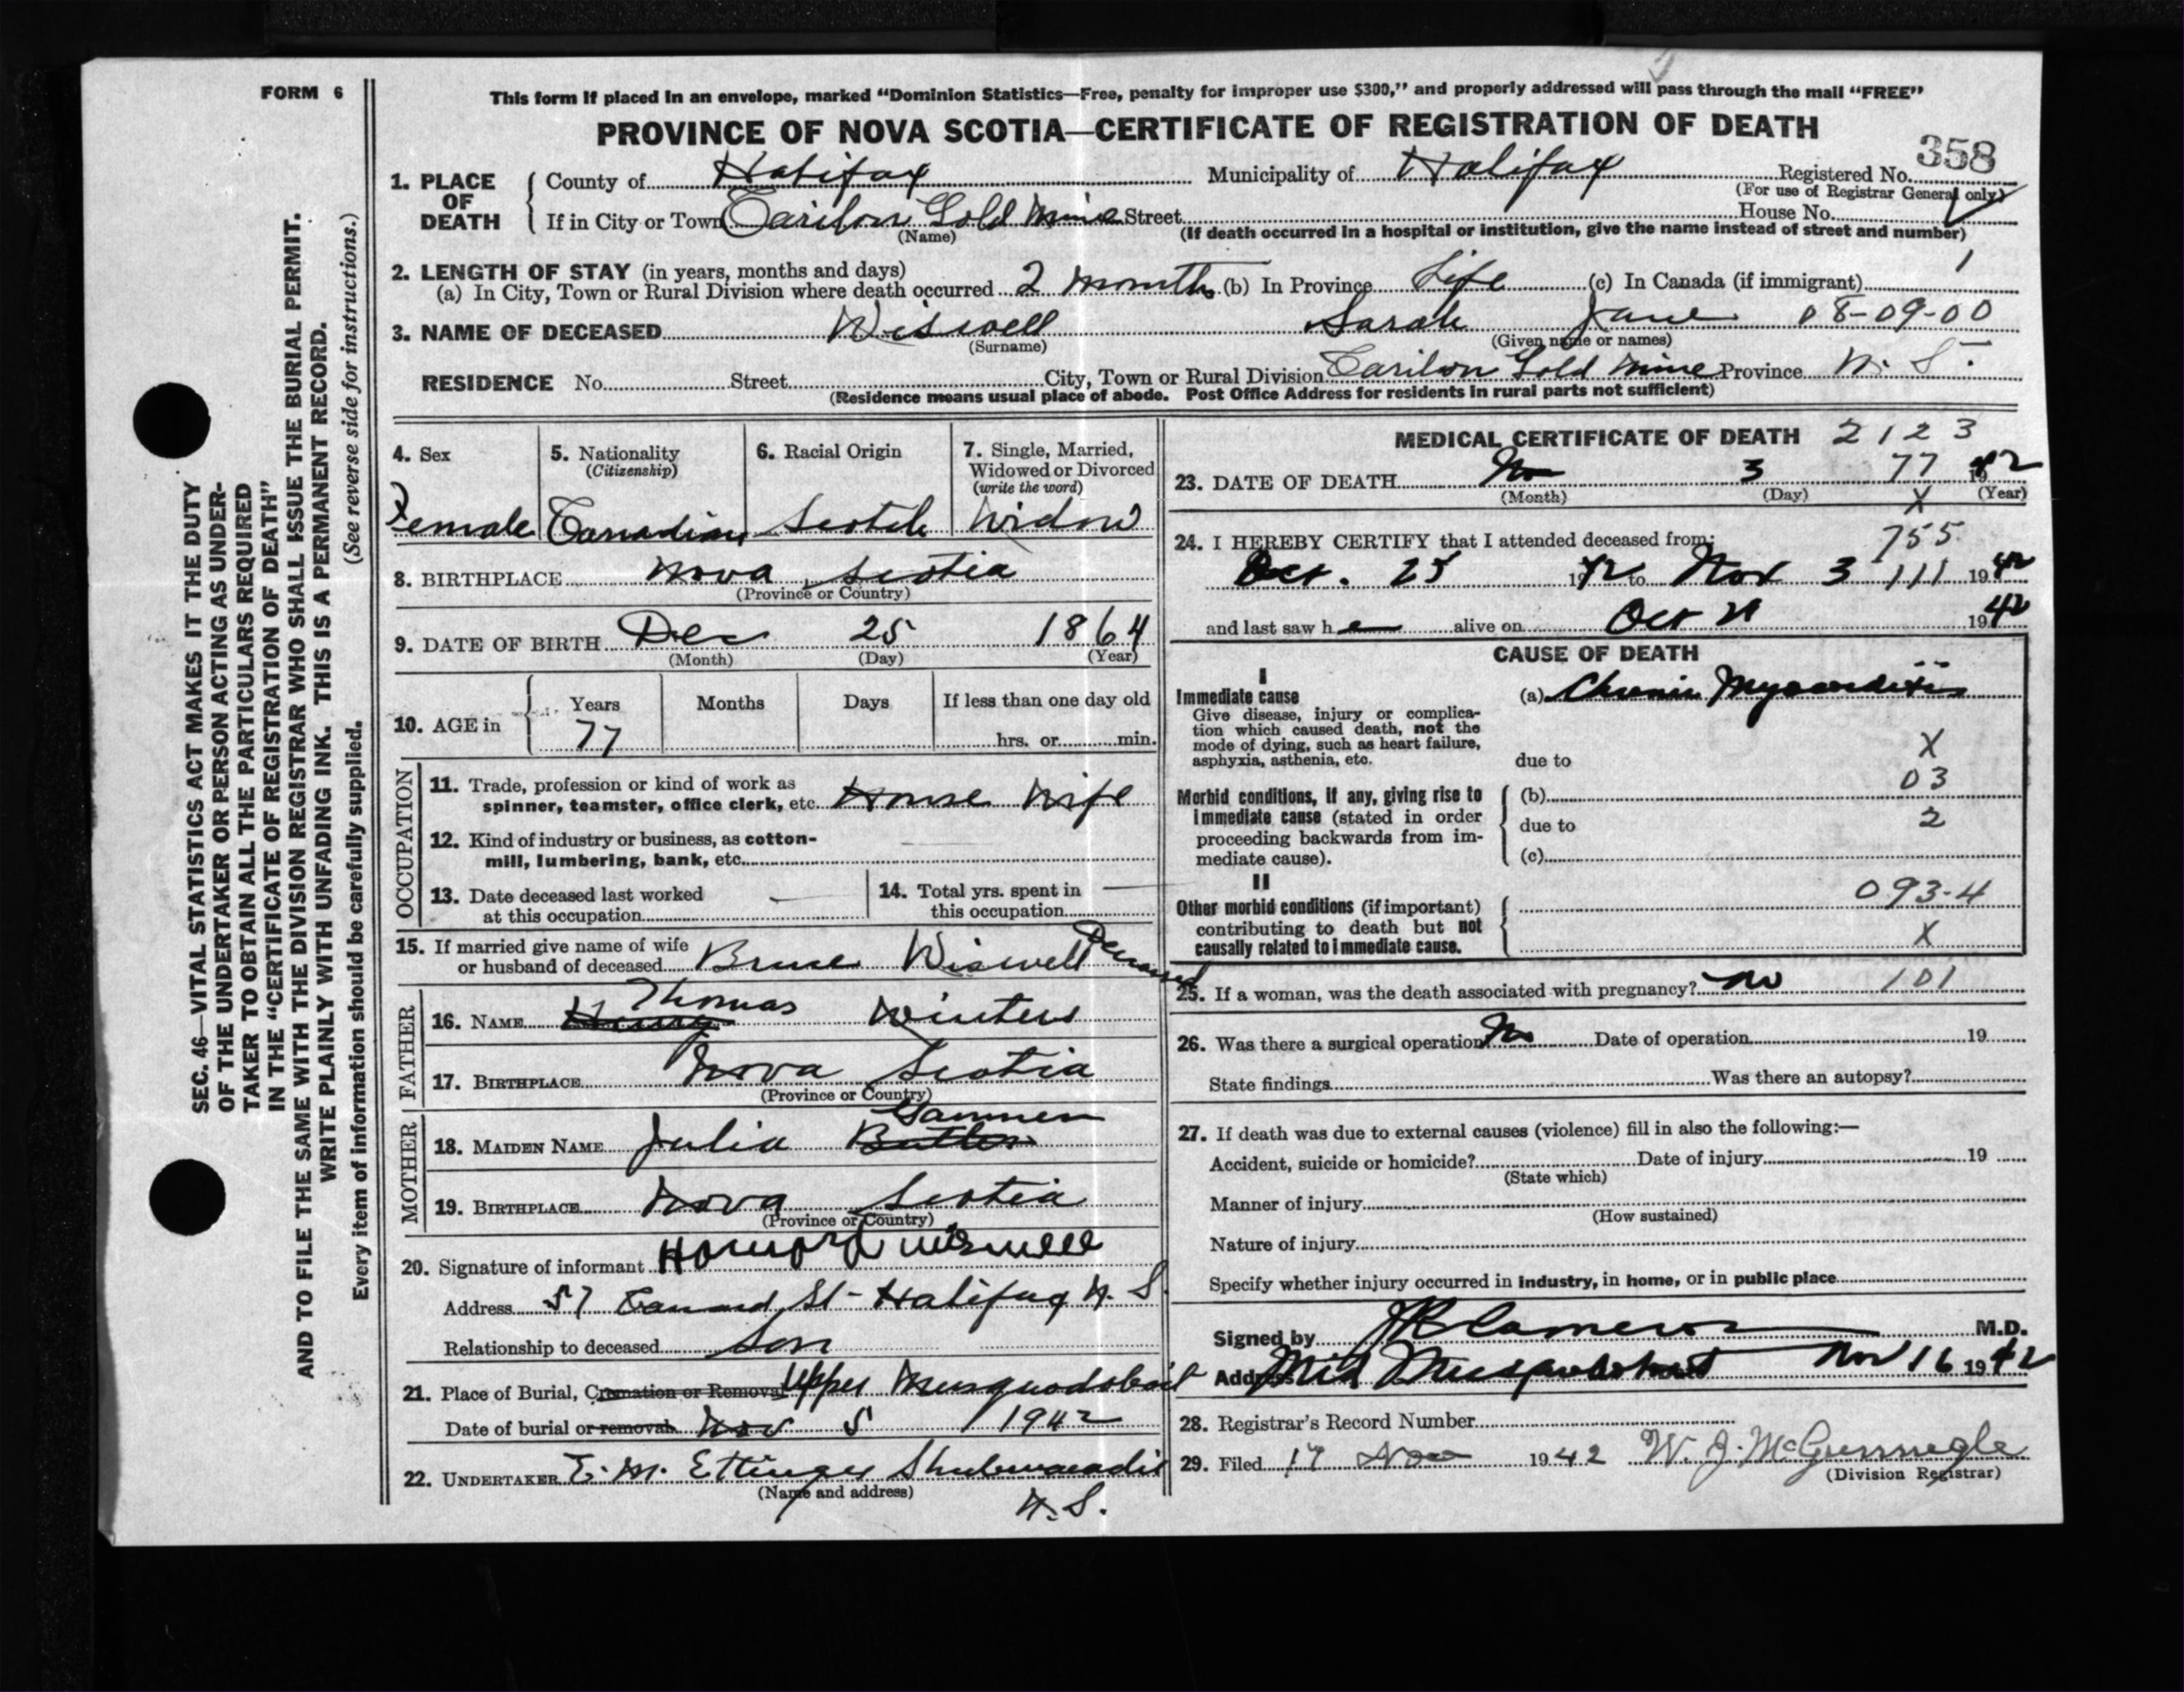 FORM 6
This form if placed in an envelope, marked “Dominion Statistics—Free, penalty for improper use $300,” and properly addressed will pass through the mail “FREE”
PROVINCE OF NOVA SCOTIA—CERTIFICATE OF REGISTRATION OF DEATH
358
1. PLACE OF DEATH County of Halifax Municipality of Halifax Registered No.
(For use of Registrar General only)
If in City or Town Carilon Gold Mine Street House No.
(Name) (If death occurred in a hospital or institution, give the name instead of street and number)
2. LENGTH OF STAY (in years, months and days)
(a) In City, Town or Rural Division where death occurred 2 months (b) In Province Life (c) In Canada (if immigrant)
3. NAME OF DECEASED Wiswell Sarah Jane 08-09-00
(Surname) (Given name or names)
RESIDENCE No. Street City, Town or Rural Division Carilon Gold Mine Province N. S.
(Residence means usual place of abode. Post Office Address for residents in rural parts not sufficient)
4. Sex 5. Nationality (Citizenship) 6. Racial Origin 7. Single, Married, Widowed or Divorced (write the word)
Female Canadian Scotch Widow
8. BIRTHPLACE Nova Scotia
(Province or Country)
9. DATE OF BIRTH Dec 25 1864
(Month) (Day) (Year)
10. AGE in Years Months Days If less than one day old
77 hrs. or min.
OCCUPATION
11. Trade, profession or kind of work as
spinner, teamster, office clerk, etc. House Wife
12. Kind of industry or business, as cotton-
mill, lumbering, bank, etc.
13. Date deceased last worked
at this occupation
14. Total yrs. spent in
this occupation
15. If married give name of wife
or husband of deceased Bruce Wiswell Deceased
FATHER
Thomas
16. NAME Henry Winters
17. BIRTHPLACE Nova Scotia
(Province or Country)
MOTHER
Gammen
18. MAIDEN NAME Julia Butler
19. BIRTHPLACE Nova Scotia
(Province or Country)
20. Signature of informant Howard Wiswell
Address 57 St - Halifax N. S.
Relationship to deceased Son
21. Place of Burial, Cremation or Removal Upper Musquodoboit
Date of burial or removal Nov 5 1942
22. UNDERTAKER E. M. Ettinger Shubenacadie
(Name and address)
N. S.
MEDICAL CERTIFICATE OF DEATH 2123
23. DATE OF DEATH Nov 3 77 1942
(Month) (Day) X (Year)
24. I HEREBY CERTIFY that I attended deceased from: 755
Oct. 25 1942 to Nov 3 111 1942
and last saw h alive on Oct 1942
CAUSE OF DEATH
I
Immediate cause (a) Chronic Myocarditis
Give disease, injury or complica-
tion which caused death, not the
mode of dying, such as heart failure,
asphyxia, asthenia, etc. due to X
03
Morbid conditions, if any, giving rise to (b)
immediate cause (stated in order due to 2
proceeding backwards from im-
mediate cause). (c)
II
093-4
Other morbid conditions (if important)
contributing to death but not X
causally related to immediate cause.
25. If a woman, was the death associated with pregnancy? No 101
26. Was there a surgical operation No Date of operation 19
State findings Was there an autopsy?
27. If death was due to external causes (violence) fill in also the following:—
Accident, suicide or homicide? Date of injury 19
(State which)
Manner of injury
(How sustained)
Nature of injury
Specify whether injury occurred in industry, in home, or in public place
Signed by Cameron M.D.
Address Mid Musquodoboit Nov 16 1942
28. Registrar's Record Number
29. Filed 17 Nov 1942 W. J. McGunnegle
(Division Registrar)
SEC. 46—VITAL STATISTICS ACT MAKES IT THE DUTY
OF THE UNDERTAKER OR PERSON ACTING AS UNDER-
TAKER TO OBTAIN ALL THE PARTICULARS REQUIRED
IN THE “CERTIFICATE OF REGISTRATION OF DEATH”
AND TO FILE THE SAME WITH THE DIVISION REGISTRAR WHO SHALL ISSUE THE BURIAL PERMIT.
WRITE PLAINLY WITH UNFADING INK. THIS IS A PERMANENT RECORD.
Every item of information should be carefully supplied. (See reverse side for instructions.)